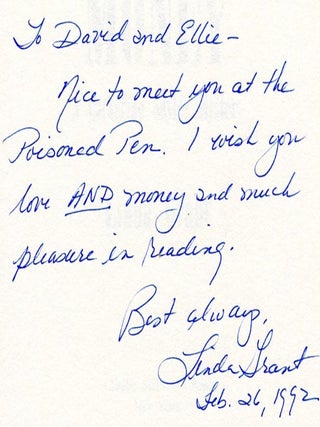 To David and Ellie –
Nice to meet you at the
Poisoned Pen. I wish you
love AND money and much
pleasure in reading.
Best always,
Linda Grant
Feb. 26, 1992